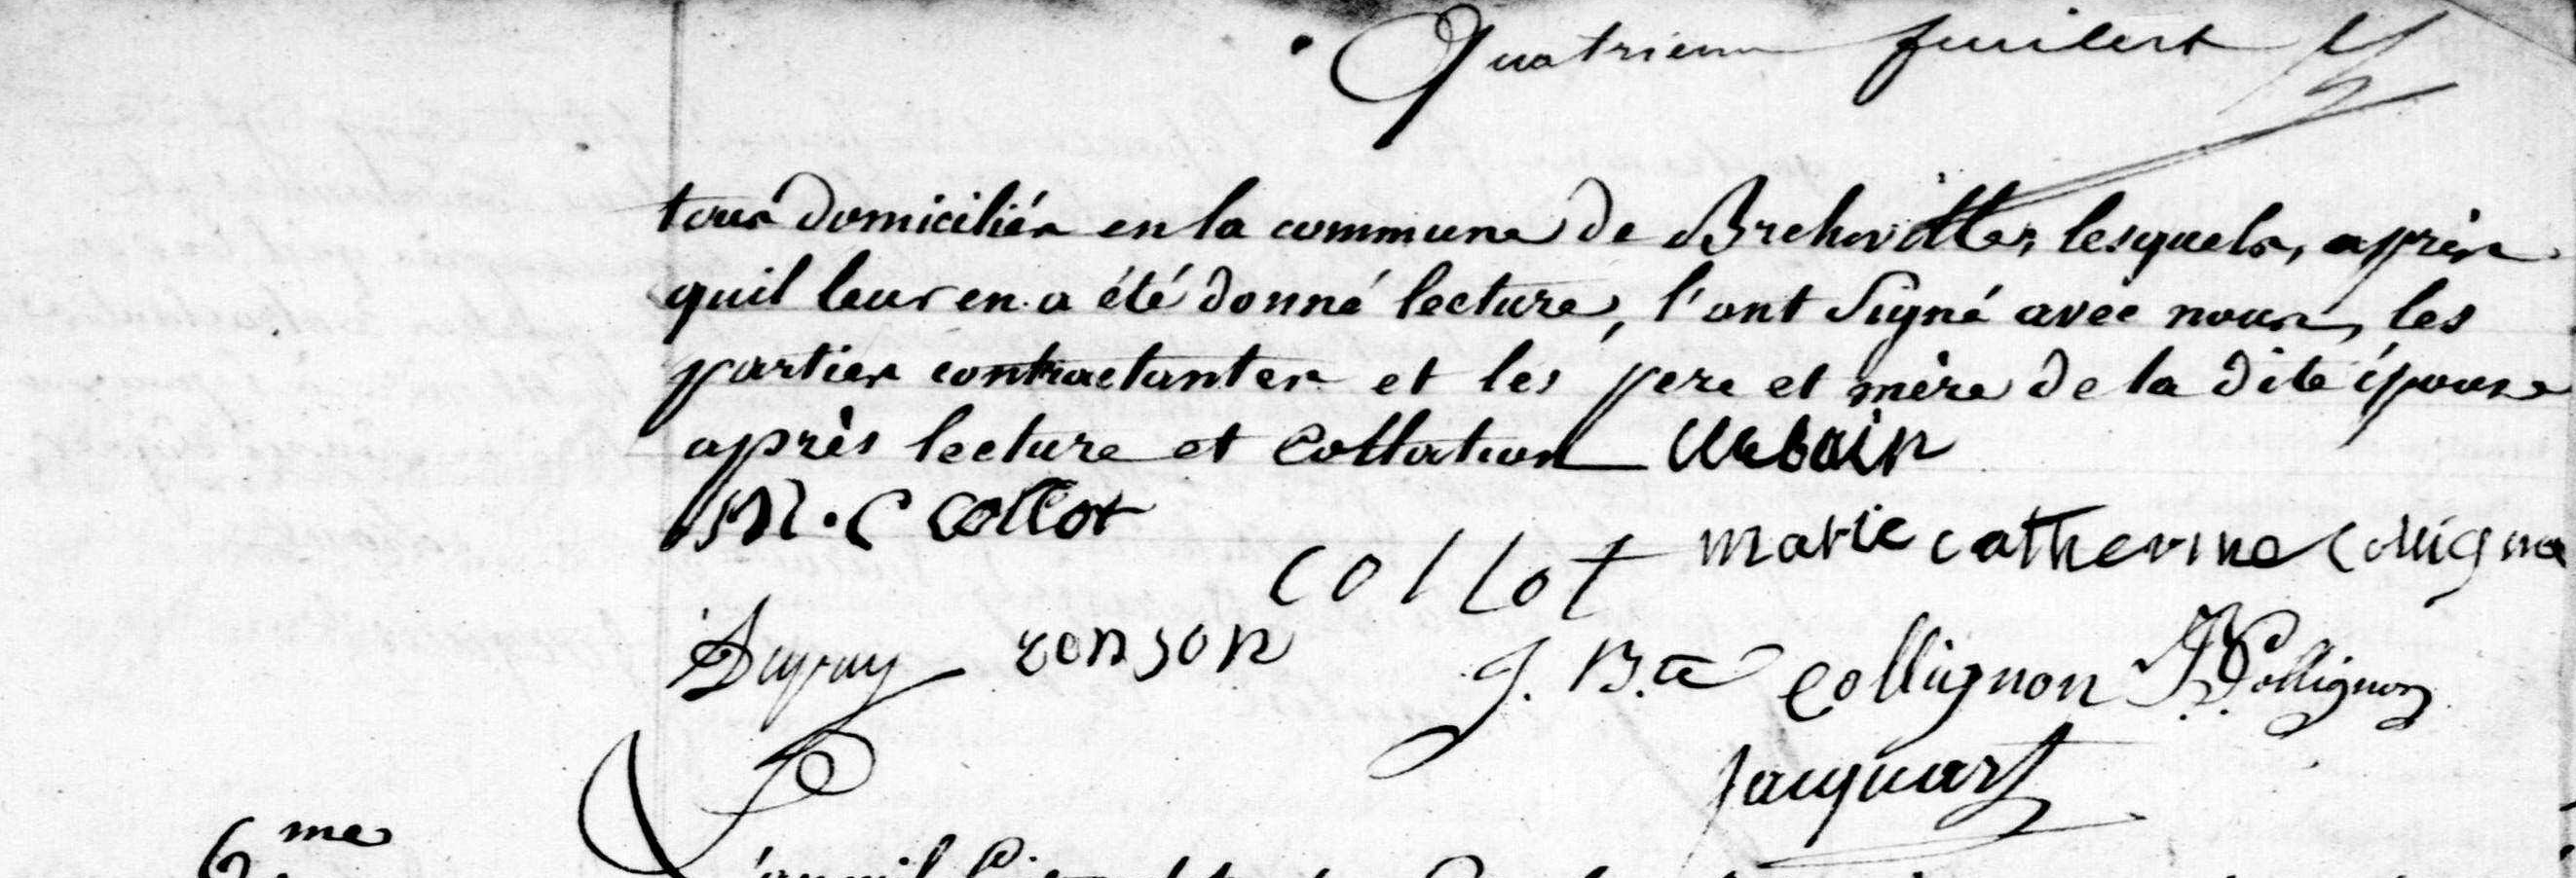 Quatrieme feuillet
tous domiciliés en la commune de Breheville, lesquels, après
quil leur en a été donné lecture, l'ont signé avec nous, les
parties contractantes et les pere et mère de la dite épouse
après lecture et collation Urbain
M. C Collot
Collot marie catherine collignon
Dupuy ronson J. B.te Collignon J B Collignon
Jacquart
6me